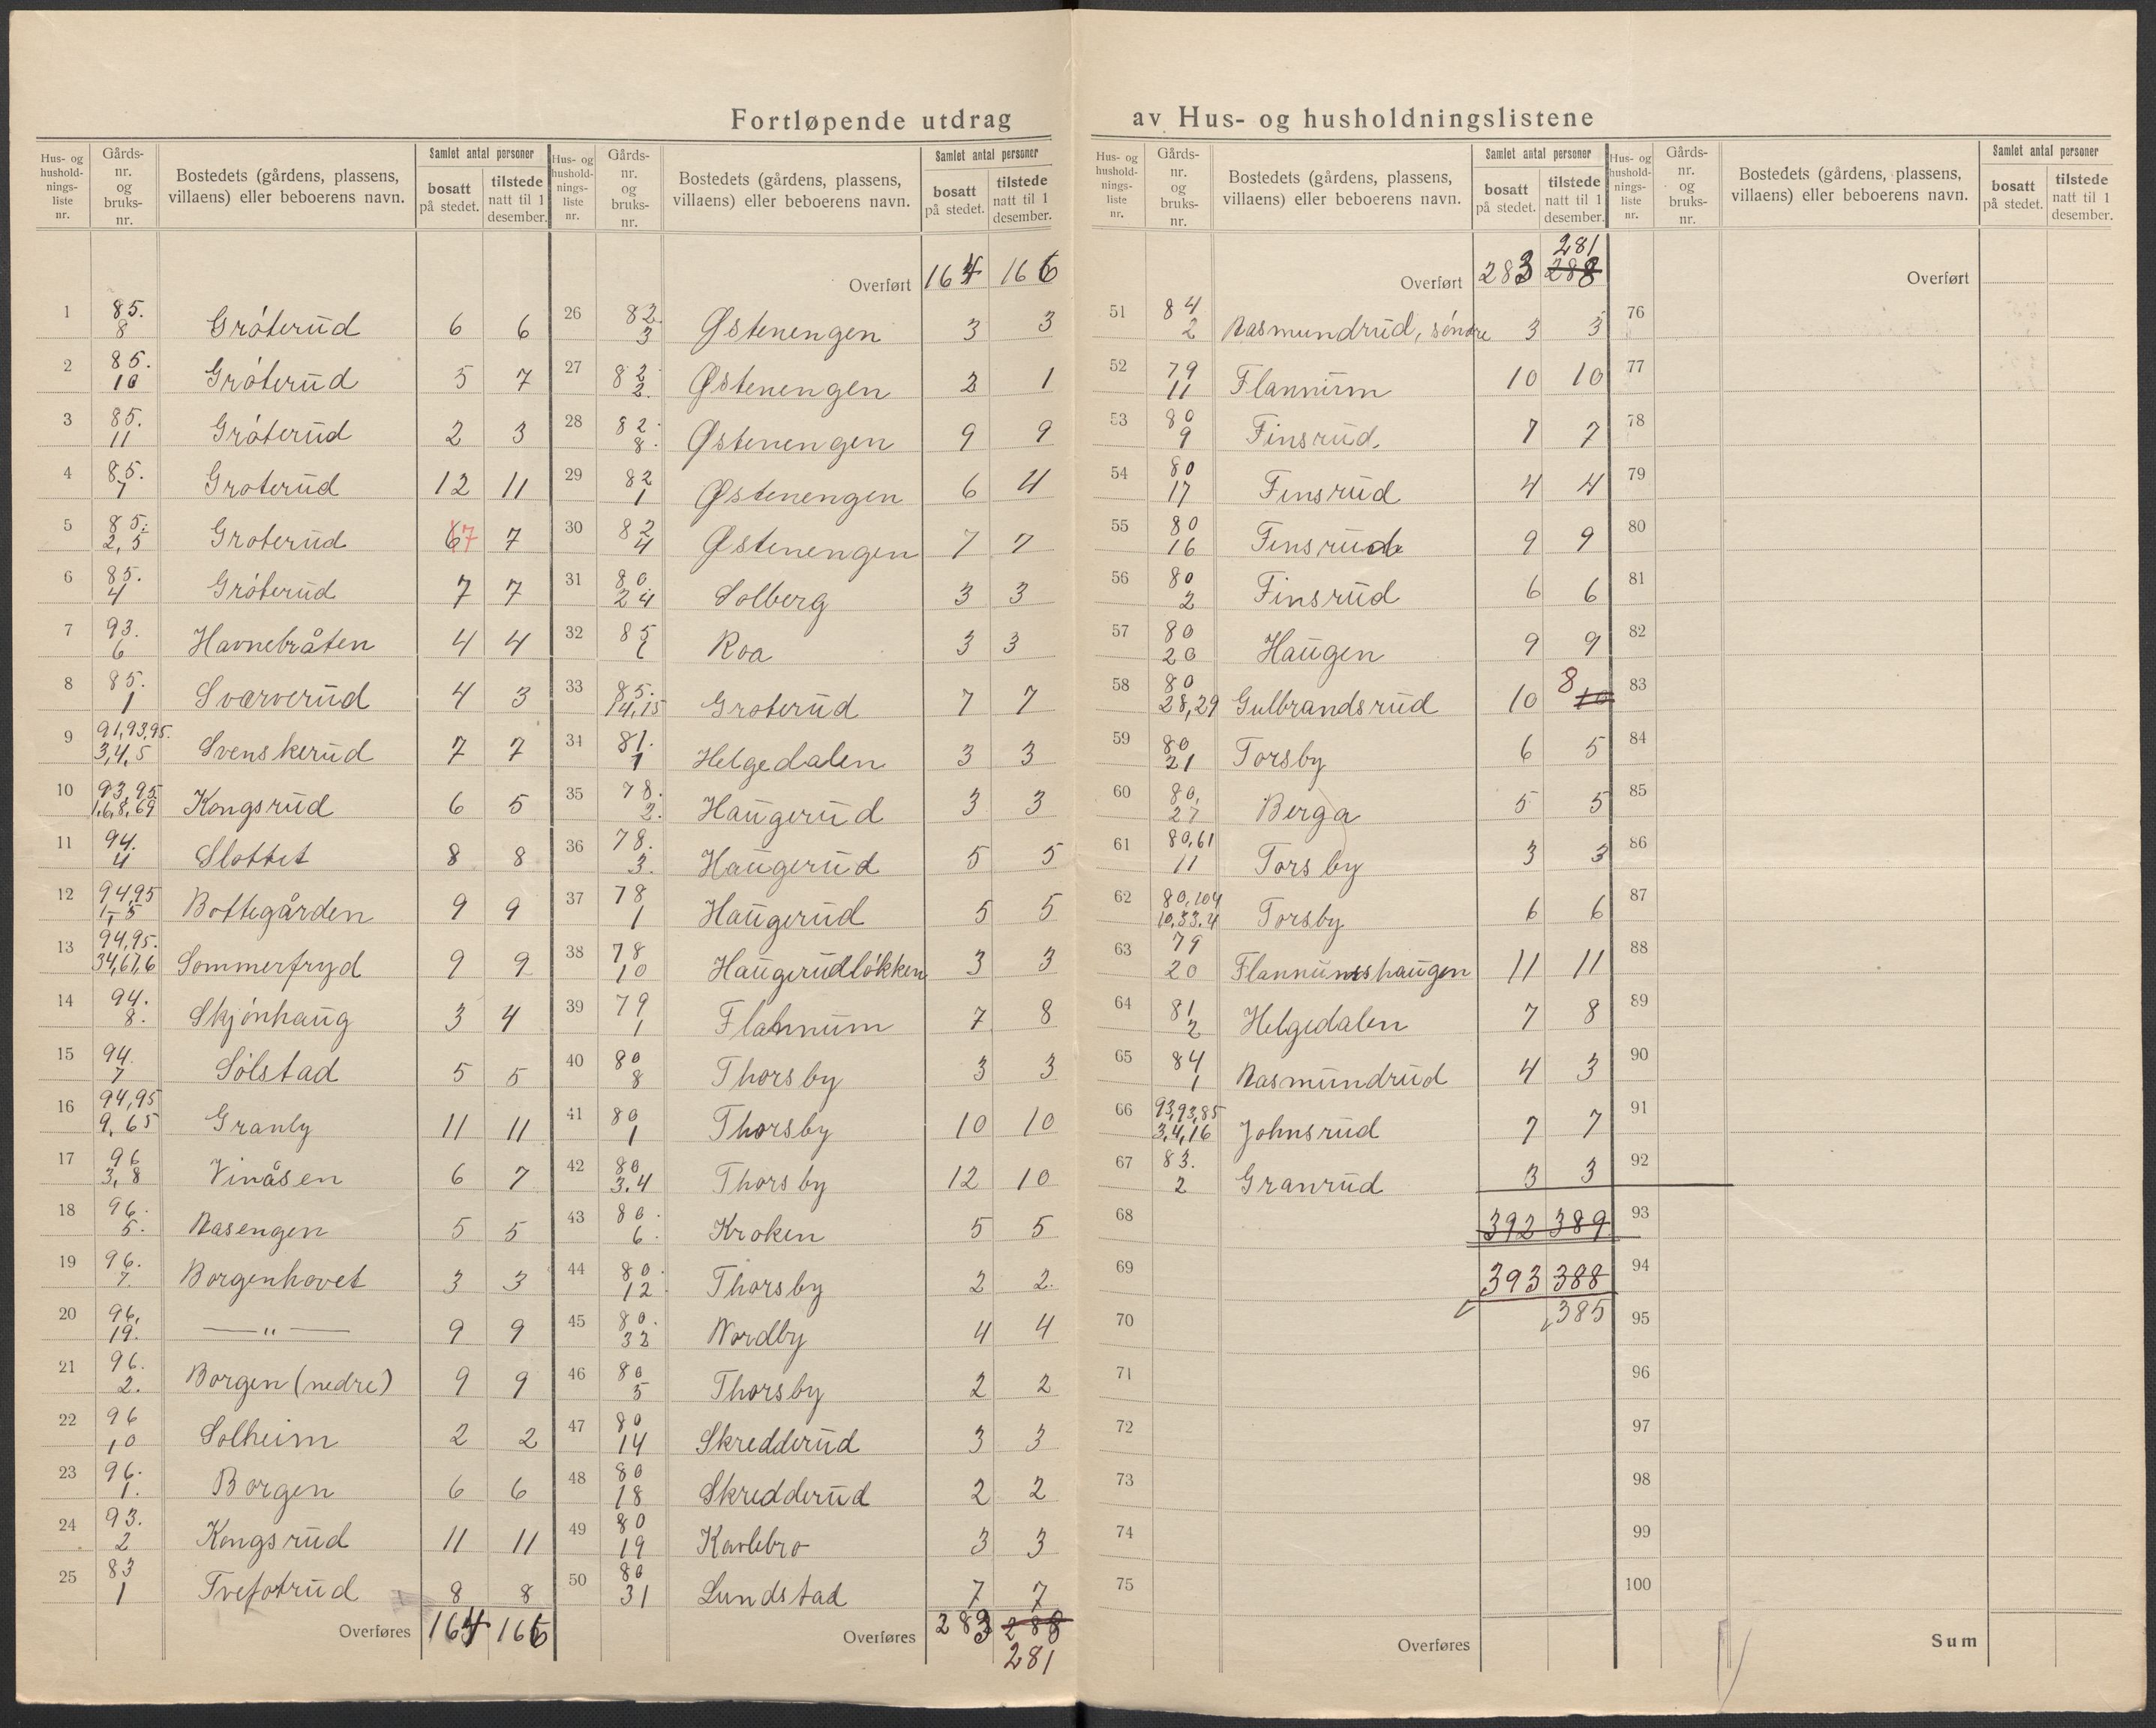 Fortløpende utdrag av Hus- og husholdningslistene
Hus- og husholdningsliste nr. | Gårdsnr. og bruksnr. | Bostedets (gårdens, plassens, villaens) eller beboerens navn. | Samlet antal personer bosatt på stedet. | tilstede natt til 1 desember.
1 85. 8 Gróterud 6 6
2 85. 10 Gróterud 5 7
3 85. 11 Gróterud 2 3
4 85. 7 Groterud 12 11
5 85. 2,5 Groterud 6 7 7
6 85. 4 Gróterud 7 7
7 93. 6 Havnebråten 4 4
8 85. 1 Sværverud 4 3
9 91,93,95. 3,4,5 Svenskerud 7 7
10 93,95 1,6,8,69 Kongsrud 6 5
11 94. 4 Slottet 8 8
12 94,95 1,-5 Bottegården 9 9
13 94,95. 34,67,6 Sommerfryd 9 9
14 94. 8. Skjónhaug 3 4
15 94. 7 Sólstad 5 5
16 94,95 9,65 Granly 11 11
17 96 3,8 Vinåsen 6 7
18 96. 5. Aasengen 5 5
19 96. 7. Borgenhovet 3 3
20 96, 19. —"— 9 9
21 96. 2. Borgen (nedre) 9 9
22 96 10 Solheim 2 2
23 96. 1. Borgen 6 6
24 93. 2 Kongsrud 11 11
25 83 1 Tvefotrud 8 8
Overføres 164 166
Hus- og husholdningsliste nr. | Gårdsnr. og bruksnr. | Bostedets (gårdens, plassens, villaens) eller beboerens navn. | Samlet antal personer bosatt på stedet. | tilstede natt til 1 desember.
Overført 164 166
26 82. 3 Østenengen 3 3
27 82. 2. Østenengen 2 1
28 82. 8. Østenengen 9 9
29 82 1 Østenengen 6 4
30 82 4 Østenengen 7 7
31 80. 24 Solberg 3 3
32 85 6 Roa 3 3
33 85. 14,15 Groterud 7 7
34 81. 1 Helgedalen 3 3
35 78. 2. Haugerud 3 3
36 78. 3. Haugerud 5 5
37 78 1 Haugerud 5 5
38 78 10 Haugerudlökken 3 3
39 79 1 Flannum 7 8
40 80 8 Thorsby 3 3
41 80 1 Thorsby 10 10
42 80 3.4 Thorsby 12 10
43 80. 6. Kroken 5 5
44 80. 12. Thorsby 2 2.
45 80. 32 Nordby 4 4
46 80 5 Thorsby 2 2
47 80 14 Skredderud 3 3
48 80 18 Skredderud 2 2
49 80 19 Kavlebro 3 3
50 80 31 Lundstad 7 7
Overføres 283 288
281
Hus- og husholdningsliste nr. | Gårdsnr. og bruksnr. | Bostedets (gårdens, plassens, villaens) eller beboerens navn. | Samlet antal personer bosatt på stedet. | tilstede natt til 1 desember.
281
Overført 283 288
51 84 2 Aasmundrud, söndre 3 3
52 79 11 Flannum 10 10
53 80 9 Finsrud. 7 7
54 80 17 Finsrud 4 4
55 80 16 Finsrud 9 9
56 80 2 Finsrud 6 6
57 80 20 Haugen 9 9
58 80 28,29 Gulbrandsrud 10 8 10
59 80 21 Torsby 6 5
60 80, 27 Berga 5 5
61 80,61 11 Torsby 3 3
62 80,104 10,33,4 Torsby 6 6
63 79 20 Flannumshaugen 11 11
64 81 2 Helgedalen 7 8
65 84 1 Aasmundrud 4 3
66 93,93,85 3,4,16 Johnsrud 7 7
67 83. 2 Granrud 3 3
68 392 389
69 393 388
70 385
71
72
73
74
75
Overføres
Hus- og husholdningsliste nr. | Gårdsnr. og bruksnr. | Bostedets (gårdens, plassens, villaens) eller beboerens navn. | Samlet antal personer bosatt på stedet. | tilstede natt til 1 desember.
Overført
76
77
78
79
80
81
82
83
84
85
86
87
88
89
90
91
92
93
94
95
96
97
98
99
100
Sum